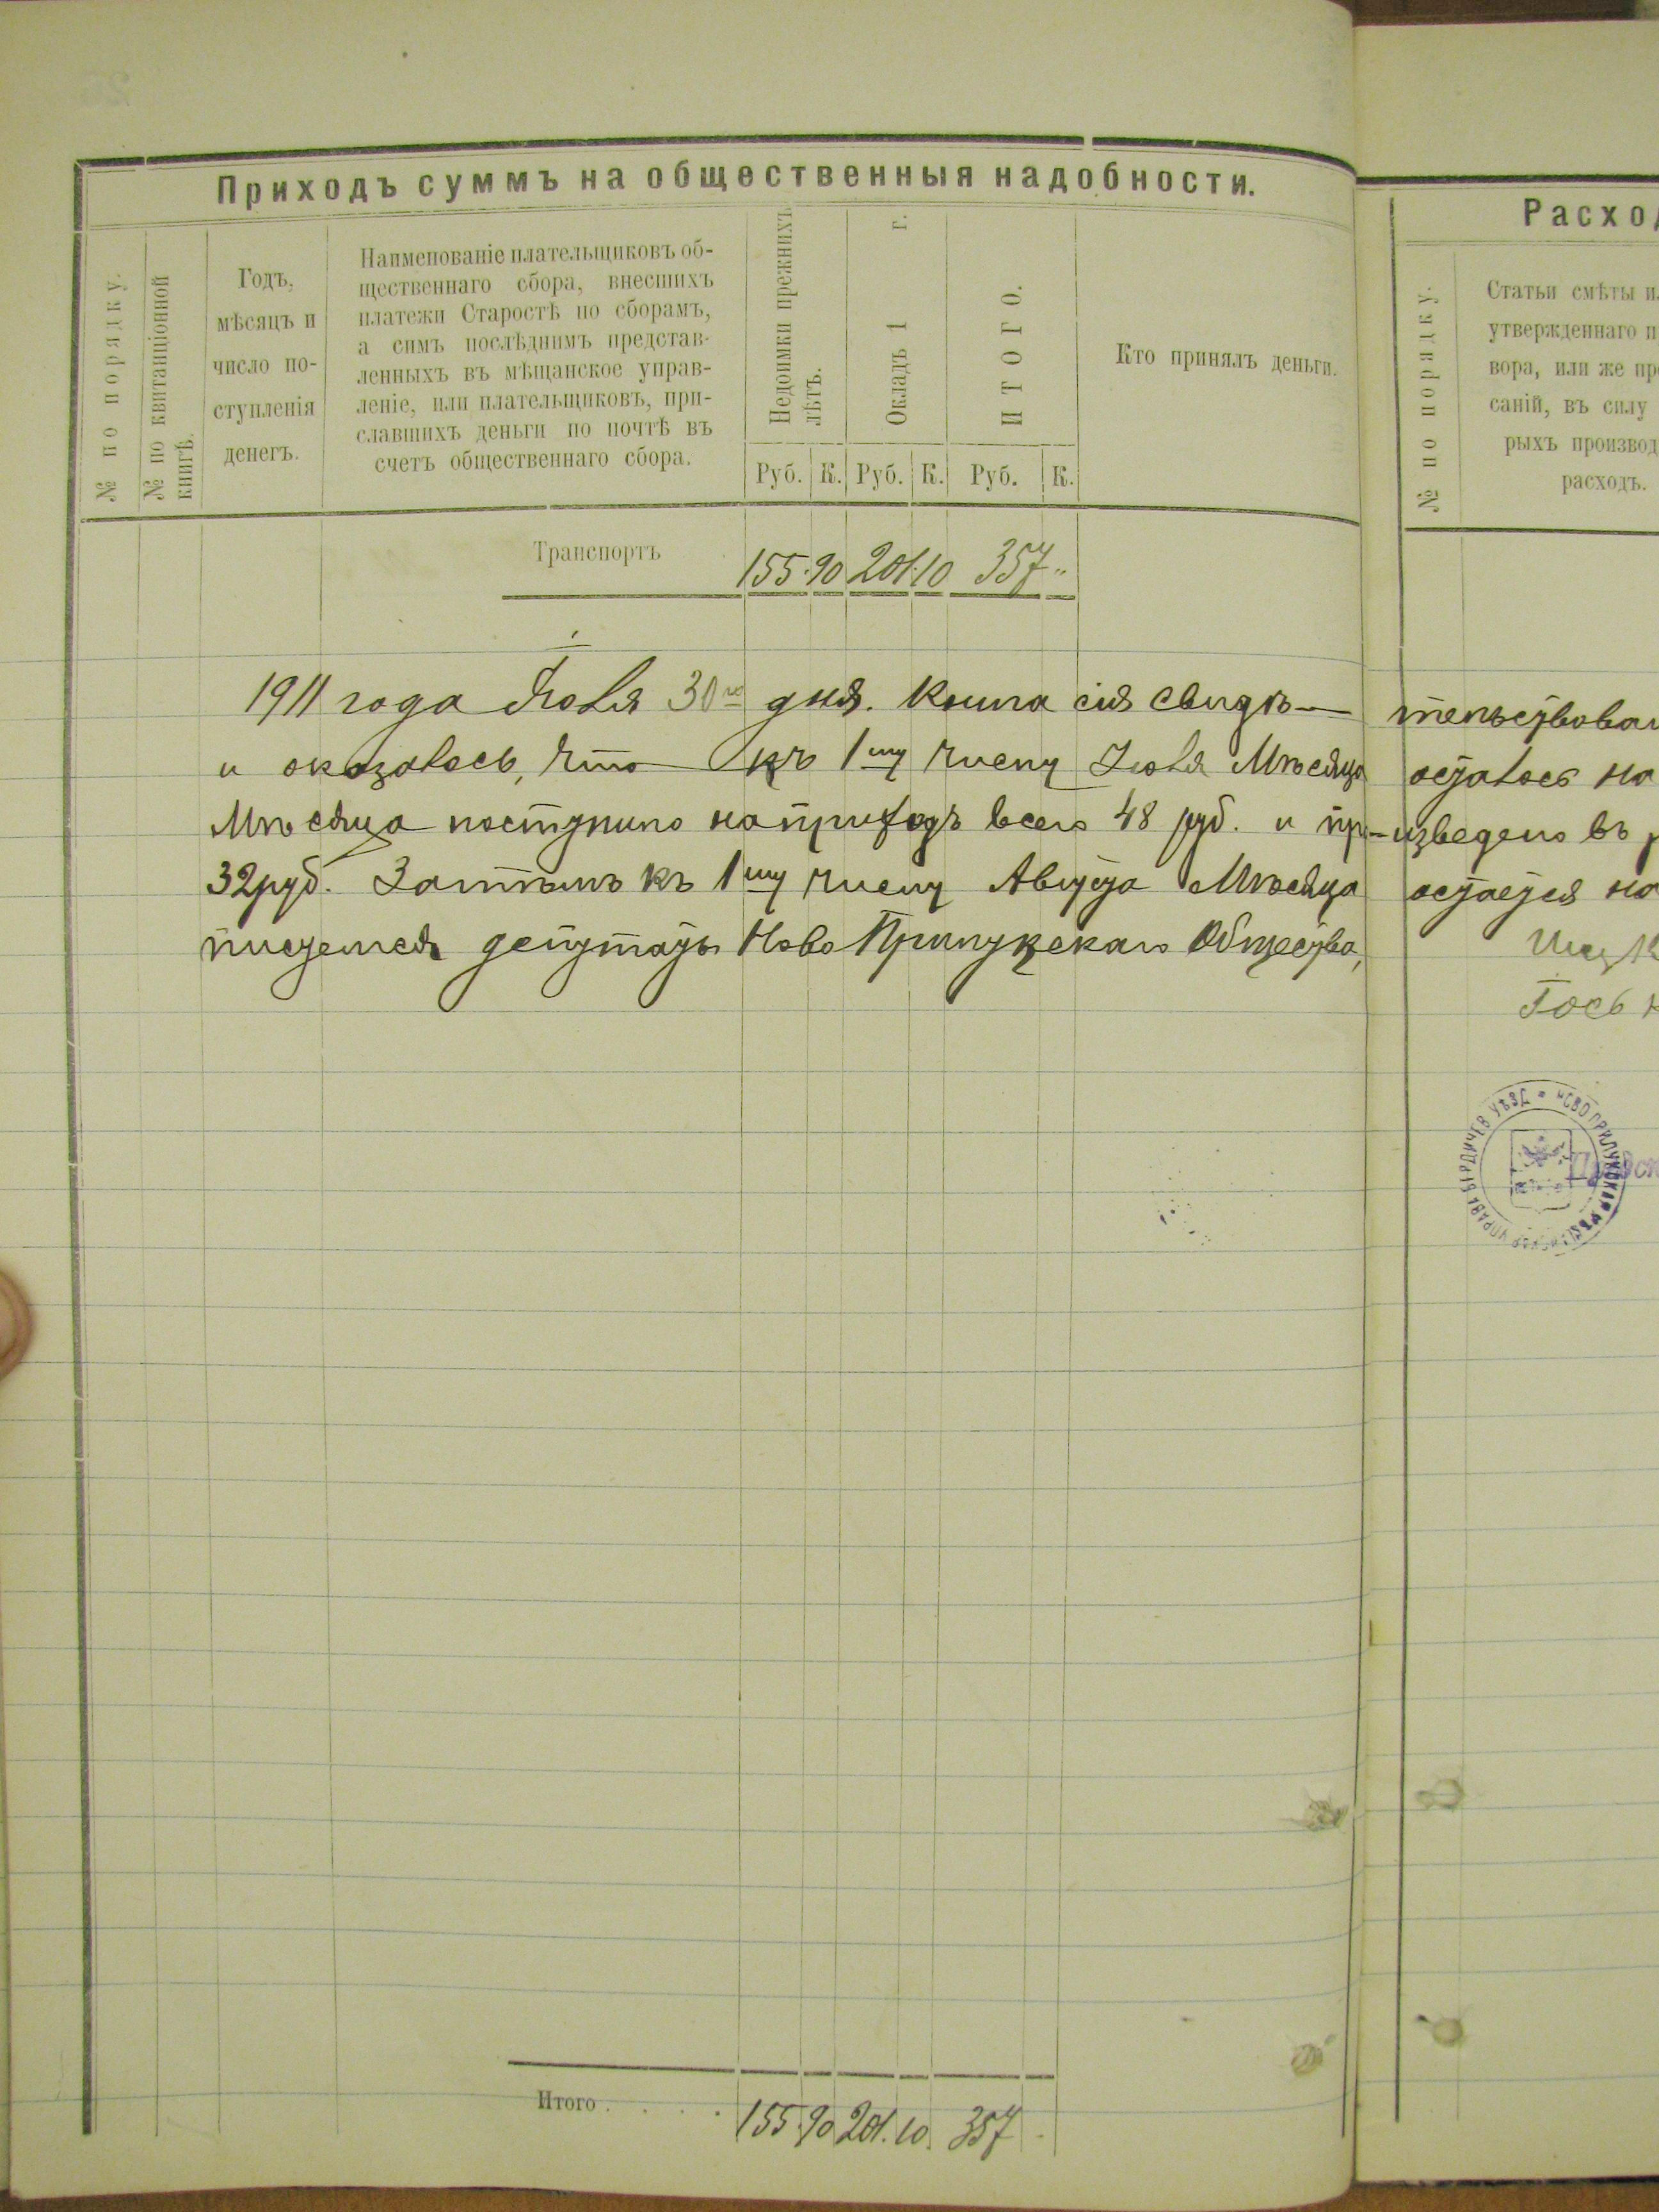 Приходъ суммъ на общественныя надобности.
№ по порядку.
№ по квитанціонной
книгѣ.
Годъ,
мѣсяцъ и
число по-
ступленія
денегъ.
Наименованіе плательщиковъ об-
щественнаго сбора, внесшихъ
платежи Старостѣ по сборамъ,
а симъ послѣднимъ представ-
ленныхъ въ мѣщанское управ-
леніе, или плательщиковъ, при-
славшихъ деньги по почтѣ въ
счетъ общественнаго сбора.
Недоимки прежнихъ
лѣтъ.
Окладъ 1 г.
ИТОГО.
Руб. К. Руб. К. Руб. К.
Кто принялъ деньги.
Транспортъ 155.90 201.10 357 "
1911 года Іюля 30го дня. Книга сія свидѣ-
и оказалось, что къ 1му числу Іюля Мѣсяца
Мѣсяца поступило на приходъ всего 48 руб. и про-
32 руб. Затѣмъ къ 1му числу Августа Мѣсяца
писуемся депутаты Ново Прилукскаго Общества,
Итого 155.90 201.10. 357 -
Расход
№ по порядку.
Статьи смѣты ил
утвержденнаго п
вора, или же пр
саній, въ силу
рыхъ производ
расходъ.
тельствован
осталось на
изведено въ р
остается на
Гось
НОВО ПРИЛУКСКАЯ УПРАВА БЕРДИЧЕВ УѢЗД